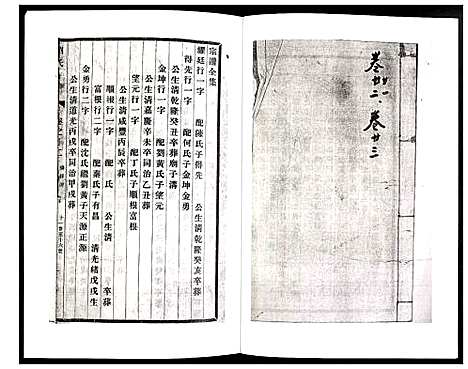 卷廿二、卷廿三
宗譜全集
耀廷行一字 配陳氏子得先 公生清乾隆癸亥卒葬
得先行一字 配何氏子金坤金勇
公生清乾隆癸丑卒葬廟子溝
金坤行一字 配劉黃氏子望元
公生清嘉慶辛未卒同治乙丑葬
望元行一字 配丁氏子順根富根
公生清咸豐丙辰卒葬
順根行一字 配 氏 公生清 卒葬
富根行二字 配秦氏子有昌 清光緒戊戌生
金勇行二字 配沈氏繼黃子天源正源
公生清道光丙戌卒同治甲戌葬